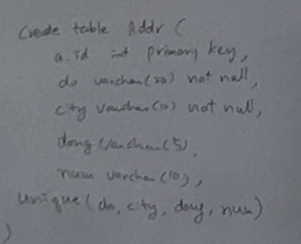 Create table Addr (
a.id int primary key,
do varchar(20) not null,
city varchar(10) not null,
dong varchar(5),
num varchar(10),
unique (do, city, dong, num)
)